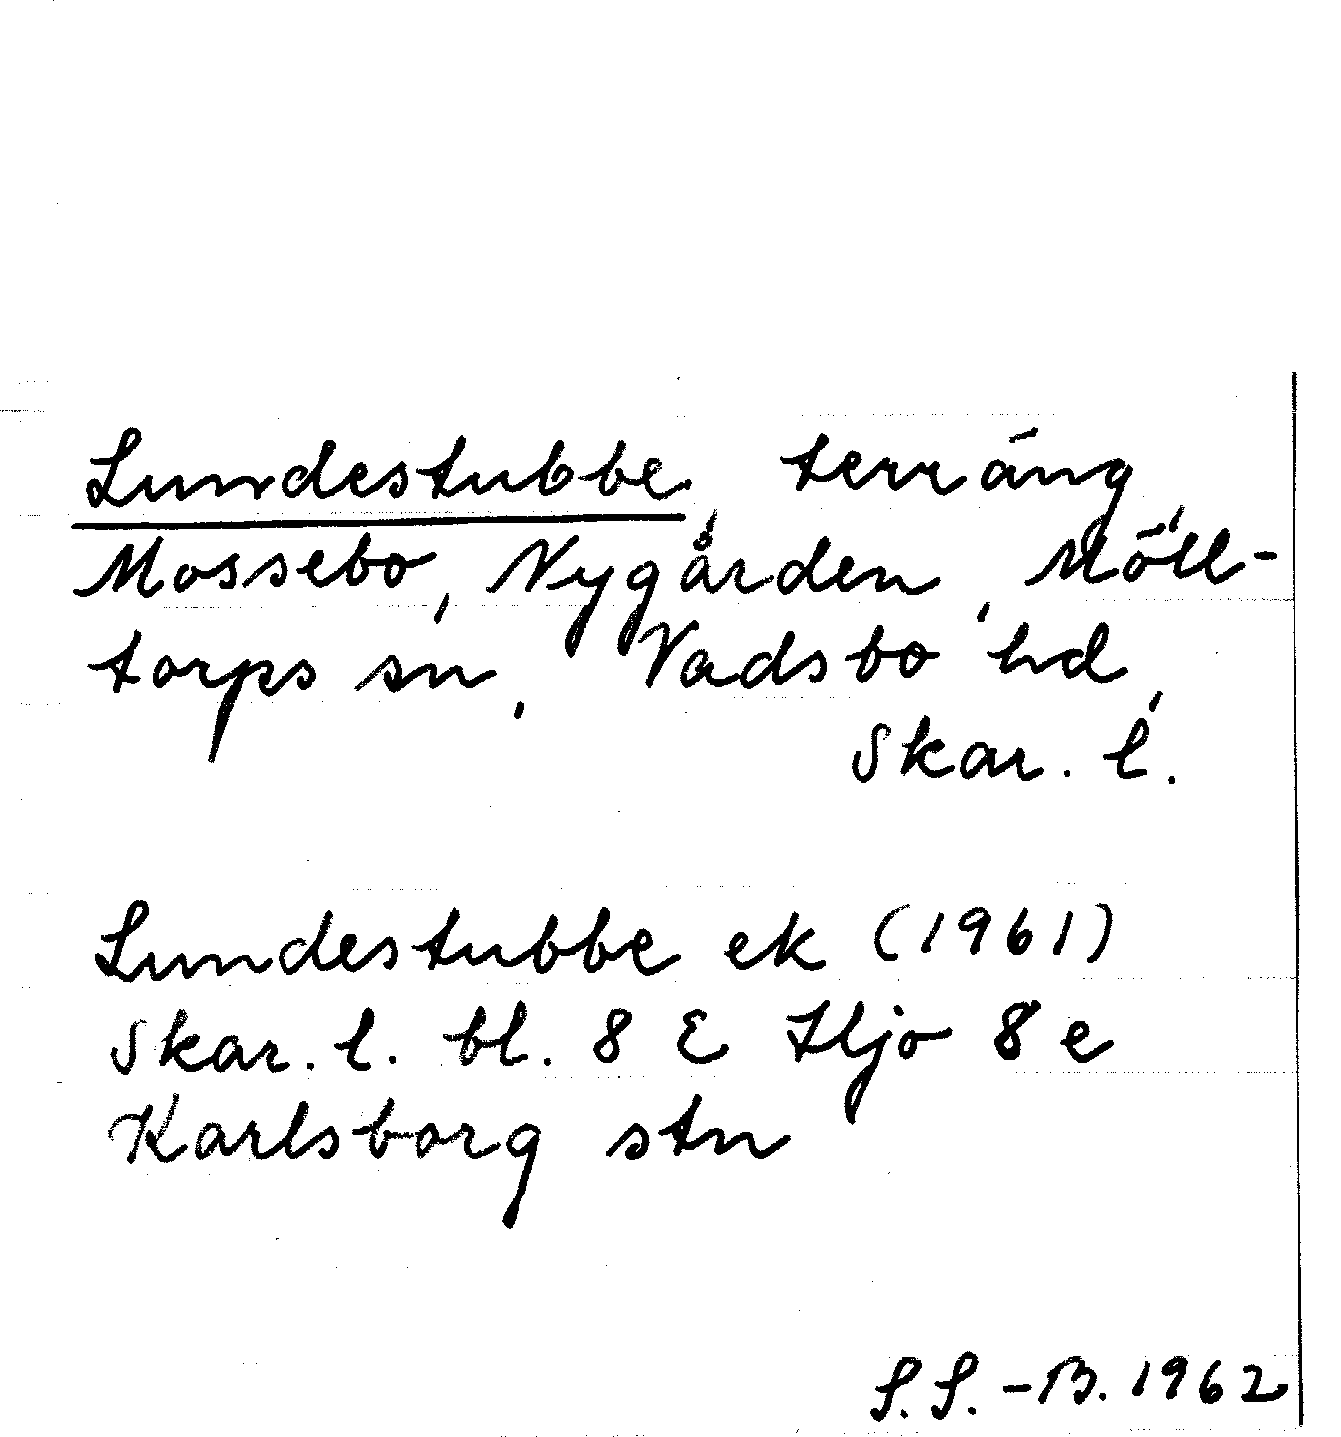 Lundestubbe, terräng,
Mossebo, Nygården, Möll-
torps sn, Vadsbo hd,
Skar. l.
Lundestubbe ek (1961)
Skar. l. bl. 8 E Hjo 8 e
Karlsborg stn
S. S. -B. 1962